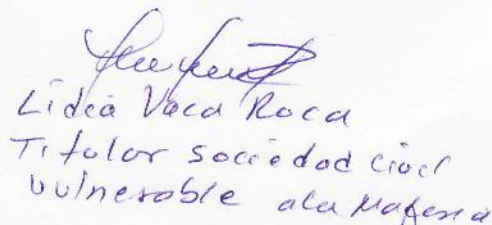 Lidia Vaca Roca
Titular sociedad civil
vulnerable a la Materia